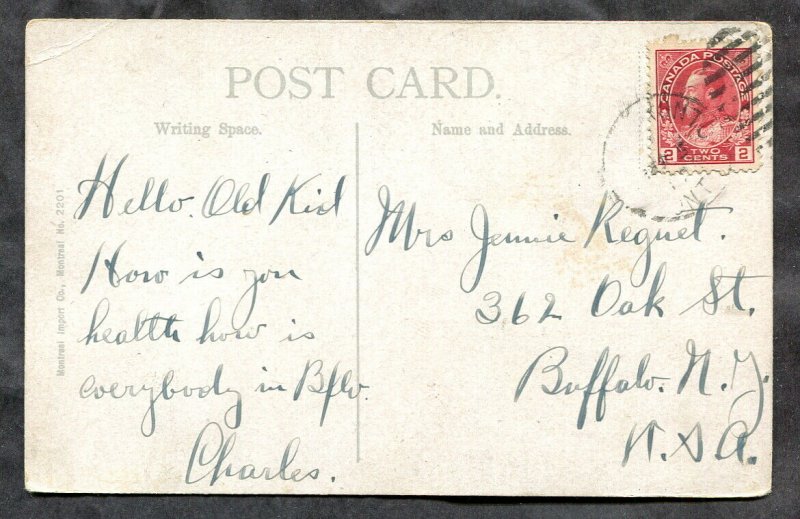 POST CARD.
Writing Space.
Name and Address.
CANADA POSTAGE
2 TWO CENTS 2
Hello. Old Kid
How is you
health how is
everybody in Bflo.
Charles.
Mrs Jennie Regnet.
362 Oak St.
Buffalo. N.Y.
U.S.A.
Montreal Import Co., Montreal No. 2201